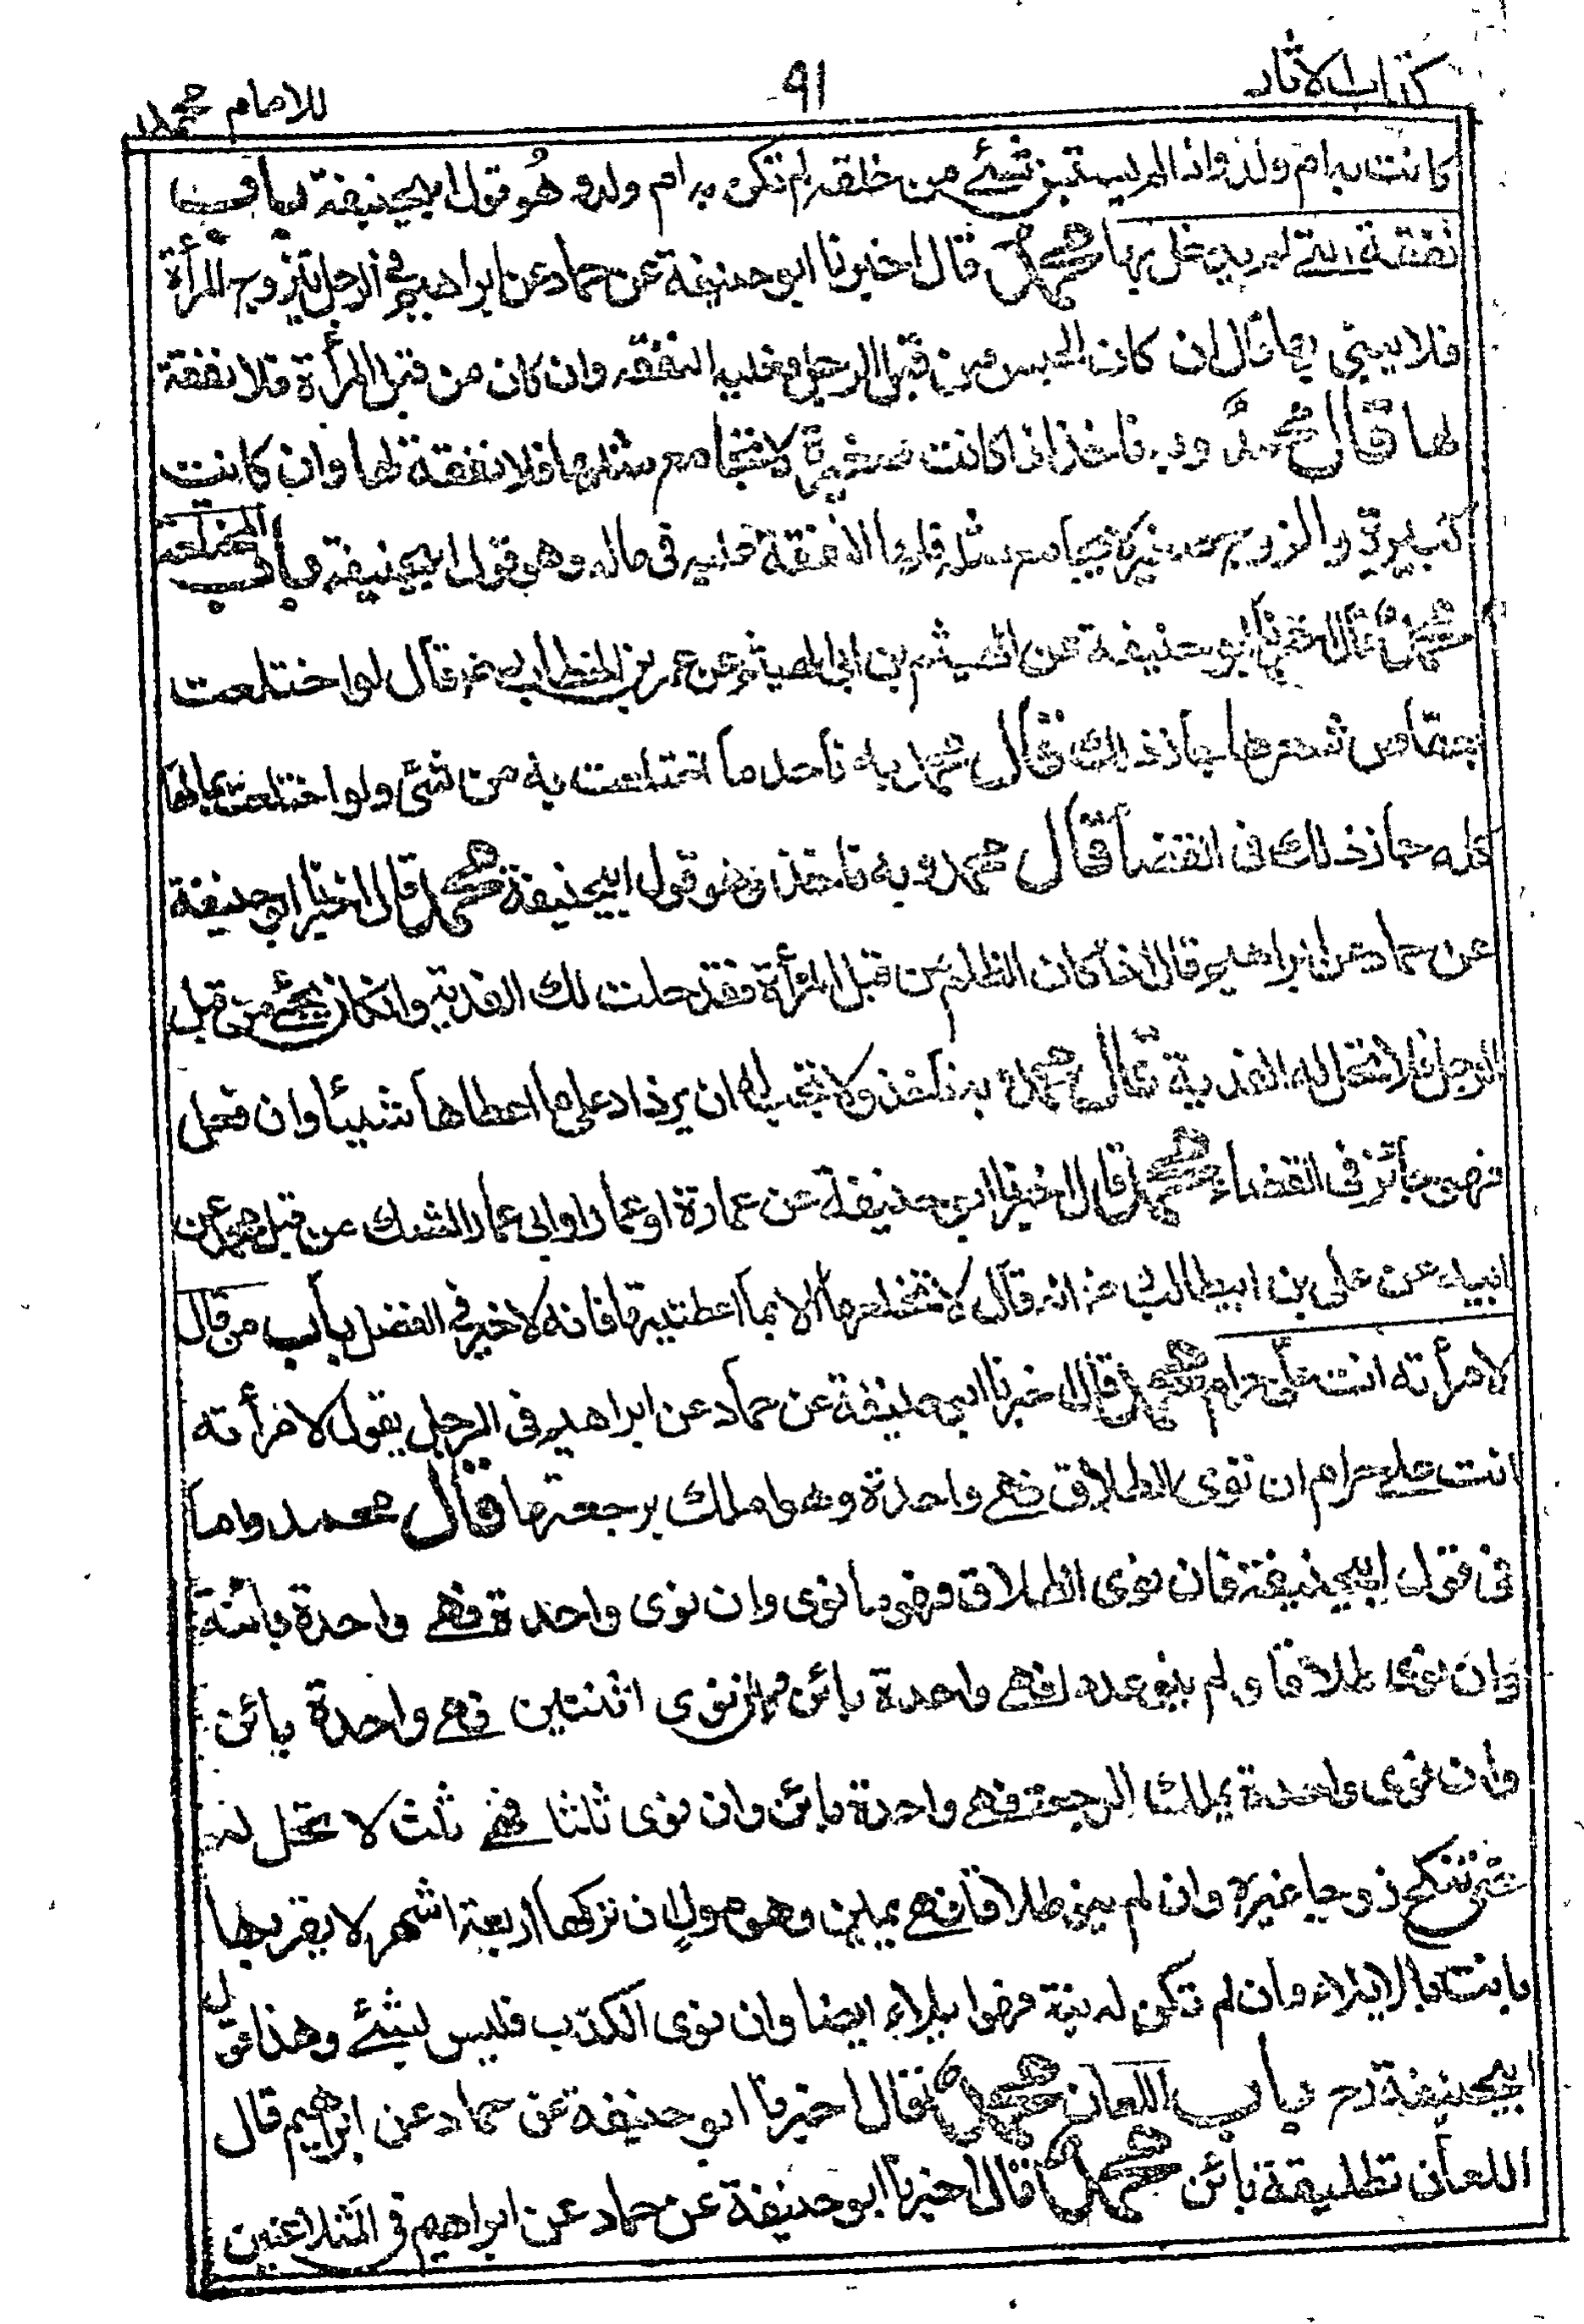 كتاب الاثار ٩١ للامام محمد
كانت به ام ولد واذا لم يستبن شئ من خلقه لم تكن به ام ولد وهو قول ابيحنيفة باب
نفقة التي لم يدخل بها محمد قال اخبرنا ابو حنيفة عن حماد عن ابراهيم في الرجل يتزوج المرأة
فلا يبني بها قال ان كان الحبس من قبل الرجل فعليه النفقه وان كان من قبل المرأة فلا نفقة
لها قال محمد وبه ناخذ اذا كانت صغيرة لا يجامع مثلها فلا نفقة لها وان كانت
كبيرة والزوج صغيرا لا يجامع مثله فلها النفقة عليه فى ماله وهو قول ابيحنيفة باب المختلعة
محمد قال اخبرنا ابو حنيفة عن الهيثم بن ابى الهيثم عن عمر بن الخطاب رضـ قال لو اختلعت
بعقاص شعرها جاز ذلك قال محمد به ناخذ ما اختلعت به من شئ ولو اختلعت بمالها
كله جاز ذلك فى القضا قال محمد وبه ناخذ وهو قول ابيحنيفة محمد قال اخبرنا ابو حنيفة
عن حماد عن ابراهيم قال اذا كان الظلم من قبل المرأة فقد حلت لك الفدية وان كان يجئ من قبل
الرجل فلا تحل له الفدية قال محمد به ناخذ ولا نحب له ان يزداد على ما اعطاها شيئا وان فعل
فهو جائز فى القضاء محمد قال اخبرنا ابو حنيفة عن عمارة او عمار او ابى عمار الشك من قبل محمد عن
ابيه عن على بن ابيطالب رضـ انه قال لا تخلعها الا بما اعطيتها فانه لا خير في الفضل باب من قال
لامرأته انت على حرام محمد قال اخبرنا ابو حنيفة عن حماد عن ابراهيم فى الرجل يقول لامرأته
انت على حرام ان نوى الطلاق فهي واحدة وهو املك برجعتها قال محمد واما
فى قول ابيحنيفة فان نوى الطلاق فهو ما نوى وان نوى واحدة فهي واحدة بائنة
وان نوى طلاقا ولم ينو عددا فهي واحدة بائن وان نوى اثنتين فهي واحدة بائن
وان نوى واحدة يملك الرجعة فهي واحدة بائن وان نوى ثلثا فهي ثلث لا تحل له
حتى تنكح زوجا غيره وان لم ينو طلاقا فهي يمين وهو مول ان تركها اربعة اشهر لا يقربها
بانت بالايلاء وان لم تكن له نية فهو ايلاء ايضا وان نوى الكذب فليس بشئ وهذا قول
ابيحنيفة رح باب اللعان محمد قال اخبرنا ابو حنيفة عن حماد عن ابراهيم قال
اللعان تطليقة بائن محمد قال اخبرنا ابو حنيفة عن حماد عن ابراهيم فى المتلاعنين